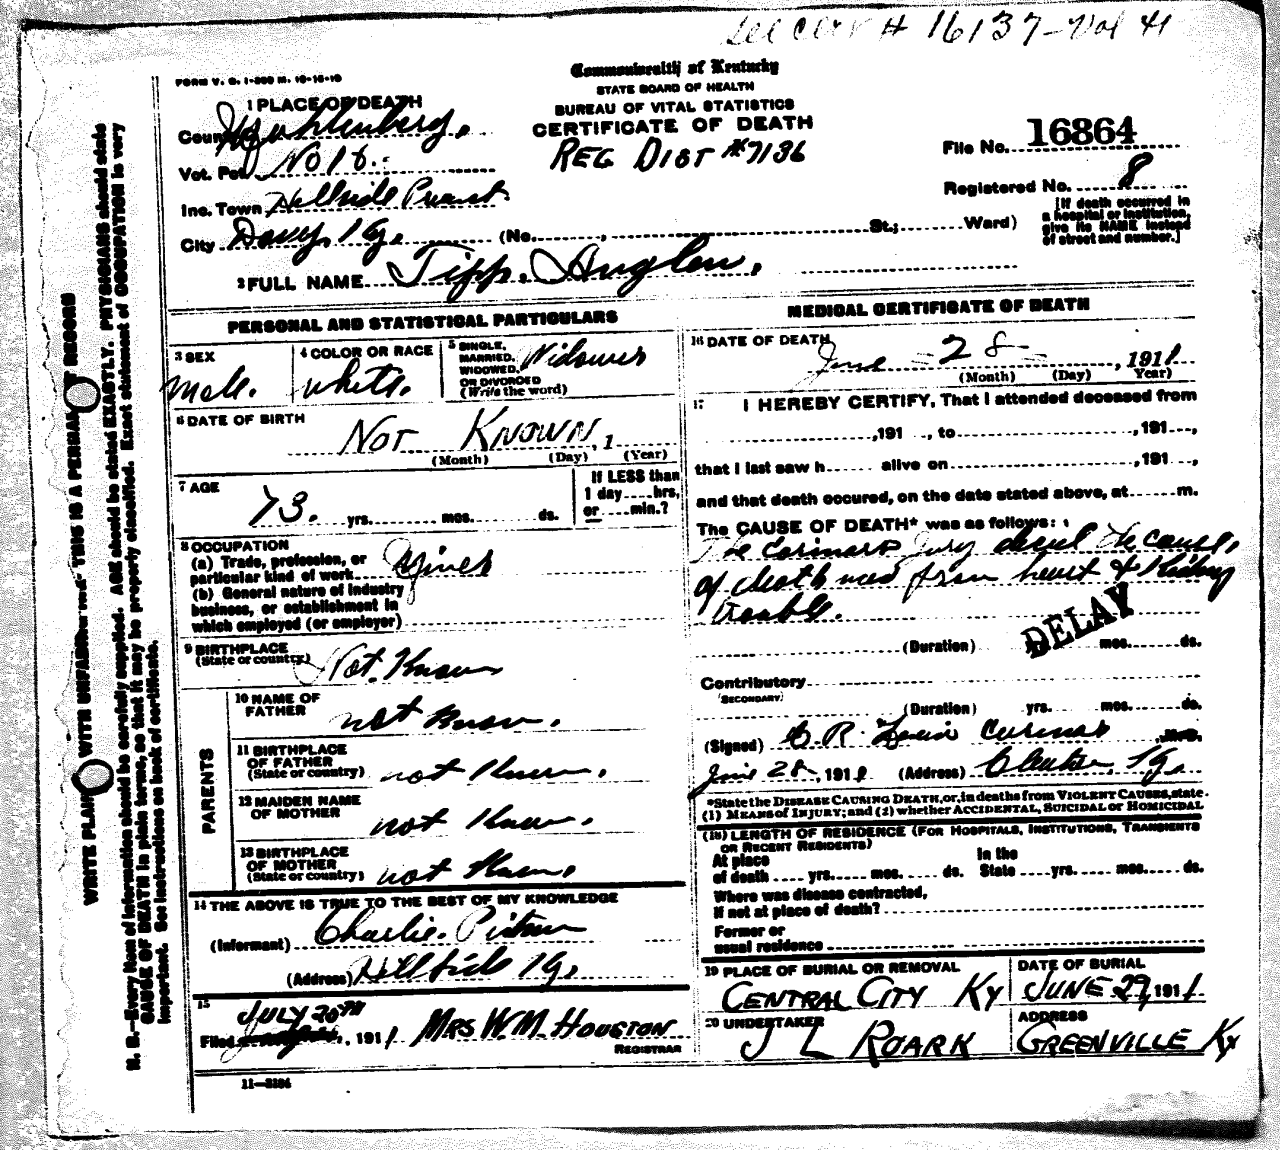 16137-Vol 41
FORM V. S. 1-500 M. 10-16-10
Commonwealth of Kentucky
STATE BOARD OF HEALTH
BUREAU OF VITAL STATISTICS
CERTIFICATE OF DEATH
REG DIST #7136
1 PLACE OF DEATH
County Muhlenberg.
Vot. Pct. No 16.
Inc. Town Hillside Precnt
City Ky. (No. , St.; Ward)
File No. 16864
Registered No. 8
[If death occurred in a hospital or institution, give its NAME instead of street and number.]
2 FULL NAME Tipp. Anglen.
PERSONAL AND STATISTICAL PARTICULARS
3 SEX
Male.
4 COLOR OR RACE
White.
5 SINGLE, MARRIED, WIDOWED, OR DIVORCED (Write the word)
Widower
6 DATE OF BIRTH
NOT KNOWN, 1
(Month) (Day) (Year)
7 AGE
73. yrs. mos. ds.
If LESS than 1 day hrs. or min.?
8 OCCUPATION
(a) Trade, profession, or particular kind of work Miner
(b) General nature of industry business, or establishment in which employed (or employer)
9 BIRTHPLACE
(State or country) Not. Known
PARENTS
10 NAME OF FATHER not Known.
11 BIRTHPLACE OF FATHER (State or country) not Known.
12 MAIDEN NAME OF MOTHER not Known.
13 BIRTHPLACE OF MOTHER (State or country) not Known.
14 THE ABOVE IS TRUE TO THE BEST OF MY KNOWLEDGE
(Informant) Charlie.
(Address) Hillside Ky.
15
JULY 20TH
Filed , 1911 MRS W.M. HOUGTON
REGISTRAR
11-3184
MEDICAL CERTIFICATE OF DEATH
16 DATE OF DEATH
June 28, 1911
(Month) (Day) Year)
17 I HEREBY CERTIFY, That I attended deceased from
,191 , to ,191 ,
that I last saw h alive on ,191 ,
and that death occured, on the date stated above, at m.
The CAUSE OF DEATH* was as follows:
The Cornars Jury decid the cause
of death was from heart & Kidny
trouble.
(Duration) mos. ds.
DELAY
Contributory
(SECONDARY)
(Duration) yrs. mos. ds.
(Signed) R. , M.D.
June 28, 1911 (Address) Ky.
*State the DISEASE CAUSING DEATH, or, in deaths from VIOLENT CAUSES, state
(1) MEANS of INJURY; and (2) whether ACCIDENTAL, SUICIDAL or HOMICIDAL
(18) LENGTH OF RESIDENCE (FOR HOSPITALS, INSTITUTIONS, TRANSIENTS
OR RECENT RESIDENTS)
At place of death yrs. mos. ds. In the State yrs. mos. ds.
Where was disease contracted,
If not at place of death?
Former or
usual residence
19 PLACE OF BURIAL OR REMOVAL
CENTRAL CITY KY
DATE OF BURIAL
JUNE 29, 1911
20 UNDERTAKER
J L ROARK
ADDRESS
GREENVILLE KY
WRITE PLAINLY WITH UNFADING THIS IS A PERMANENT RECORD
N. B.—Every item of information should be carefully supplied. AGE should be stated EXACTLY. PHYSICIANS should state
CAUSE OF DEATH in plain terms, so that it may be properly classified. Exact statement of OCCUPATION is very
important. See instructions on back of certificate.